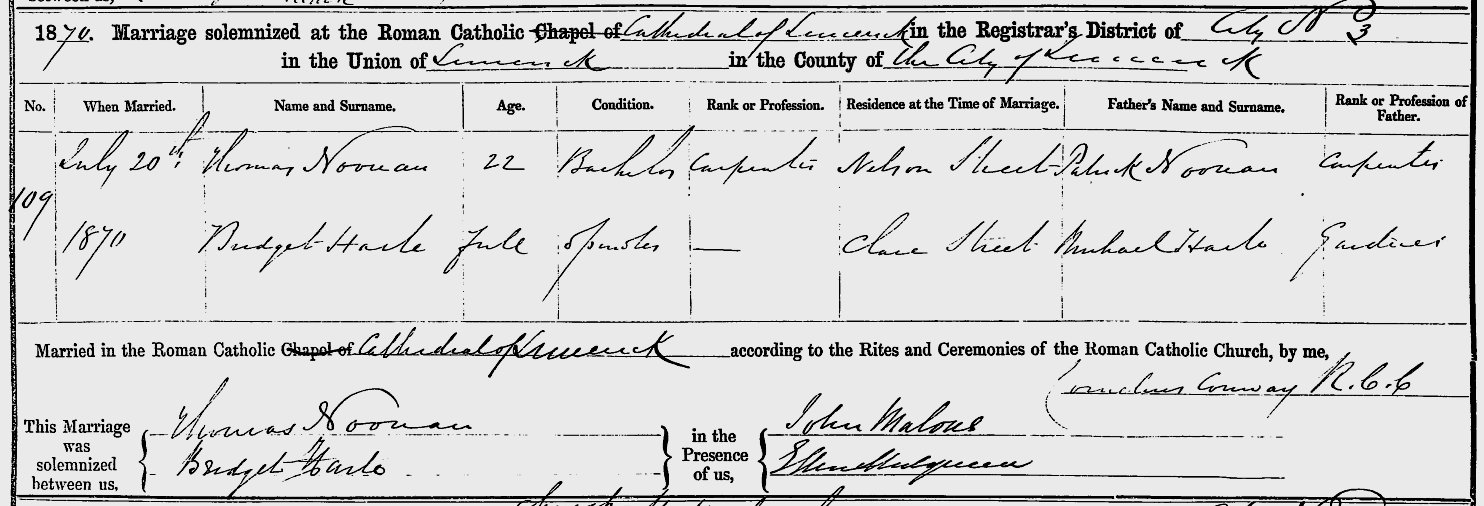 between us,
1870. Marriage solemnized at the Roman Catholic Chapel of Cathedral of Limerick in the Registrar's District of City No 3
in the Union of Limerick in the County of the City of Limerick
No. When Married. Name and Surname. Age. Condition. Rank or Profession. Residence at the Time of Marriage. Father's Name and Surname. Rank or Profession of Father.
109 July 20th Thomas Noonan 22 Bachelor Carpenter Nelson Street Patrick Noonan Carpenter
1870 Bridget Harte full Spinster — Clare Street Michael Harte Gardiner
Married in the Roman Catholic Chapel of Cathedral of Limerick according to the Rites and Ceremonies of the Roman Catholic Church, by me,
Cornelius Conway R.C.C
This Marriage was solemnized between us, Thomas Noonan
Bridget Harte
in the Presence of us, John Malone
Ellen Mulqueen